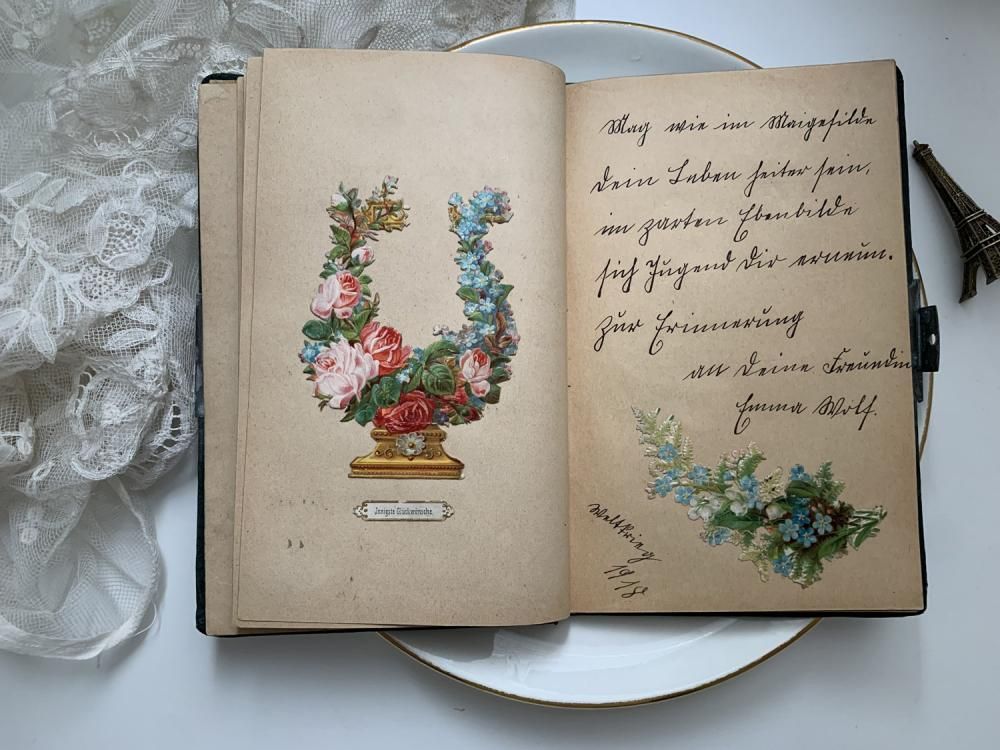 Innigste Glückwünsche.
Mag wie im Maigefilde
Dein Leben heiter sein,
im zarten Ebenbilde
sich Jugend dir erneun.
Zur Erinnerung
an Deine Freundin
Emma Wolf.
Weltkrieg
1918